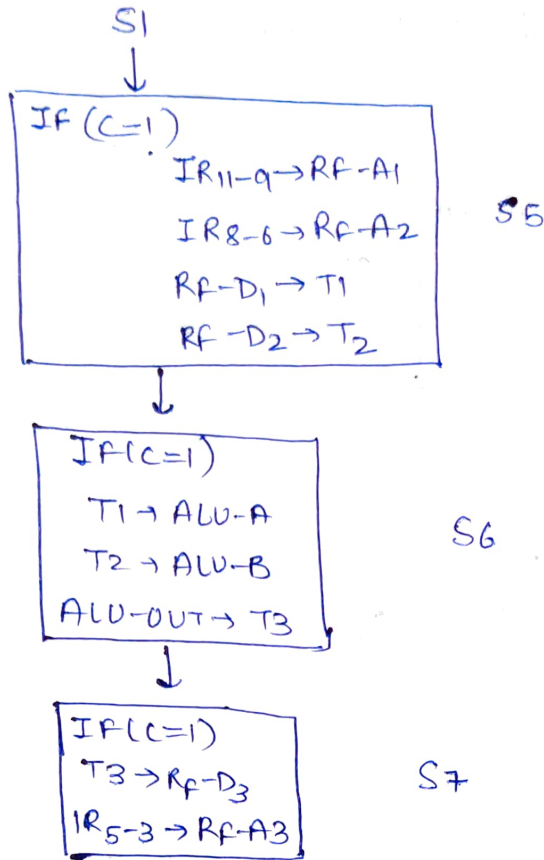 S1
IF (C=1)
IR11-9→RF-A1
IR8-6→RF-A2
RF-D1→T1
RF-D2→T2
S5
IF(C=1)
T1→ALU-A
T2→ALU-B
ALU-OUT→T3
S6
IF(C=1)
T3→RF-D3
IR5-3→RF-A3
S7